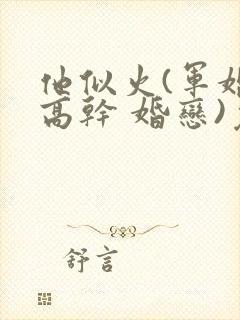 他似火(軍婚
高幹 婚戀)
舒言